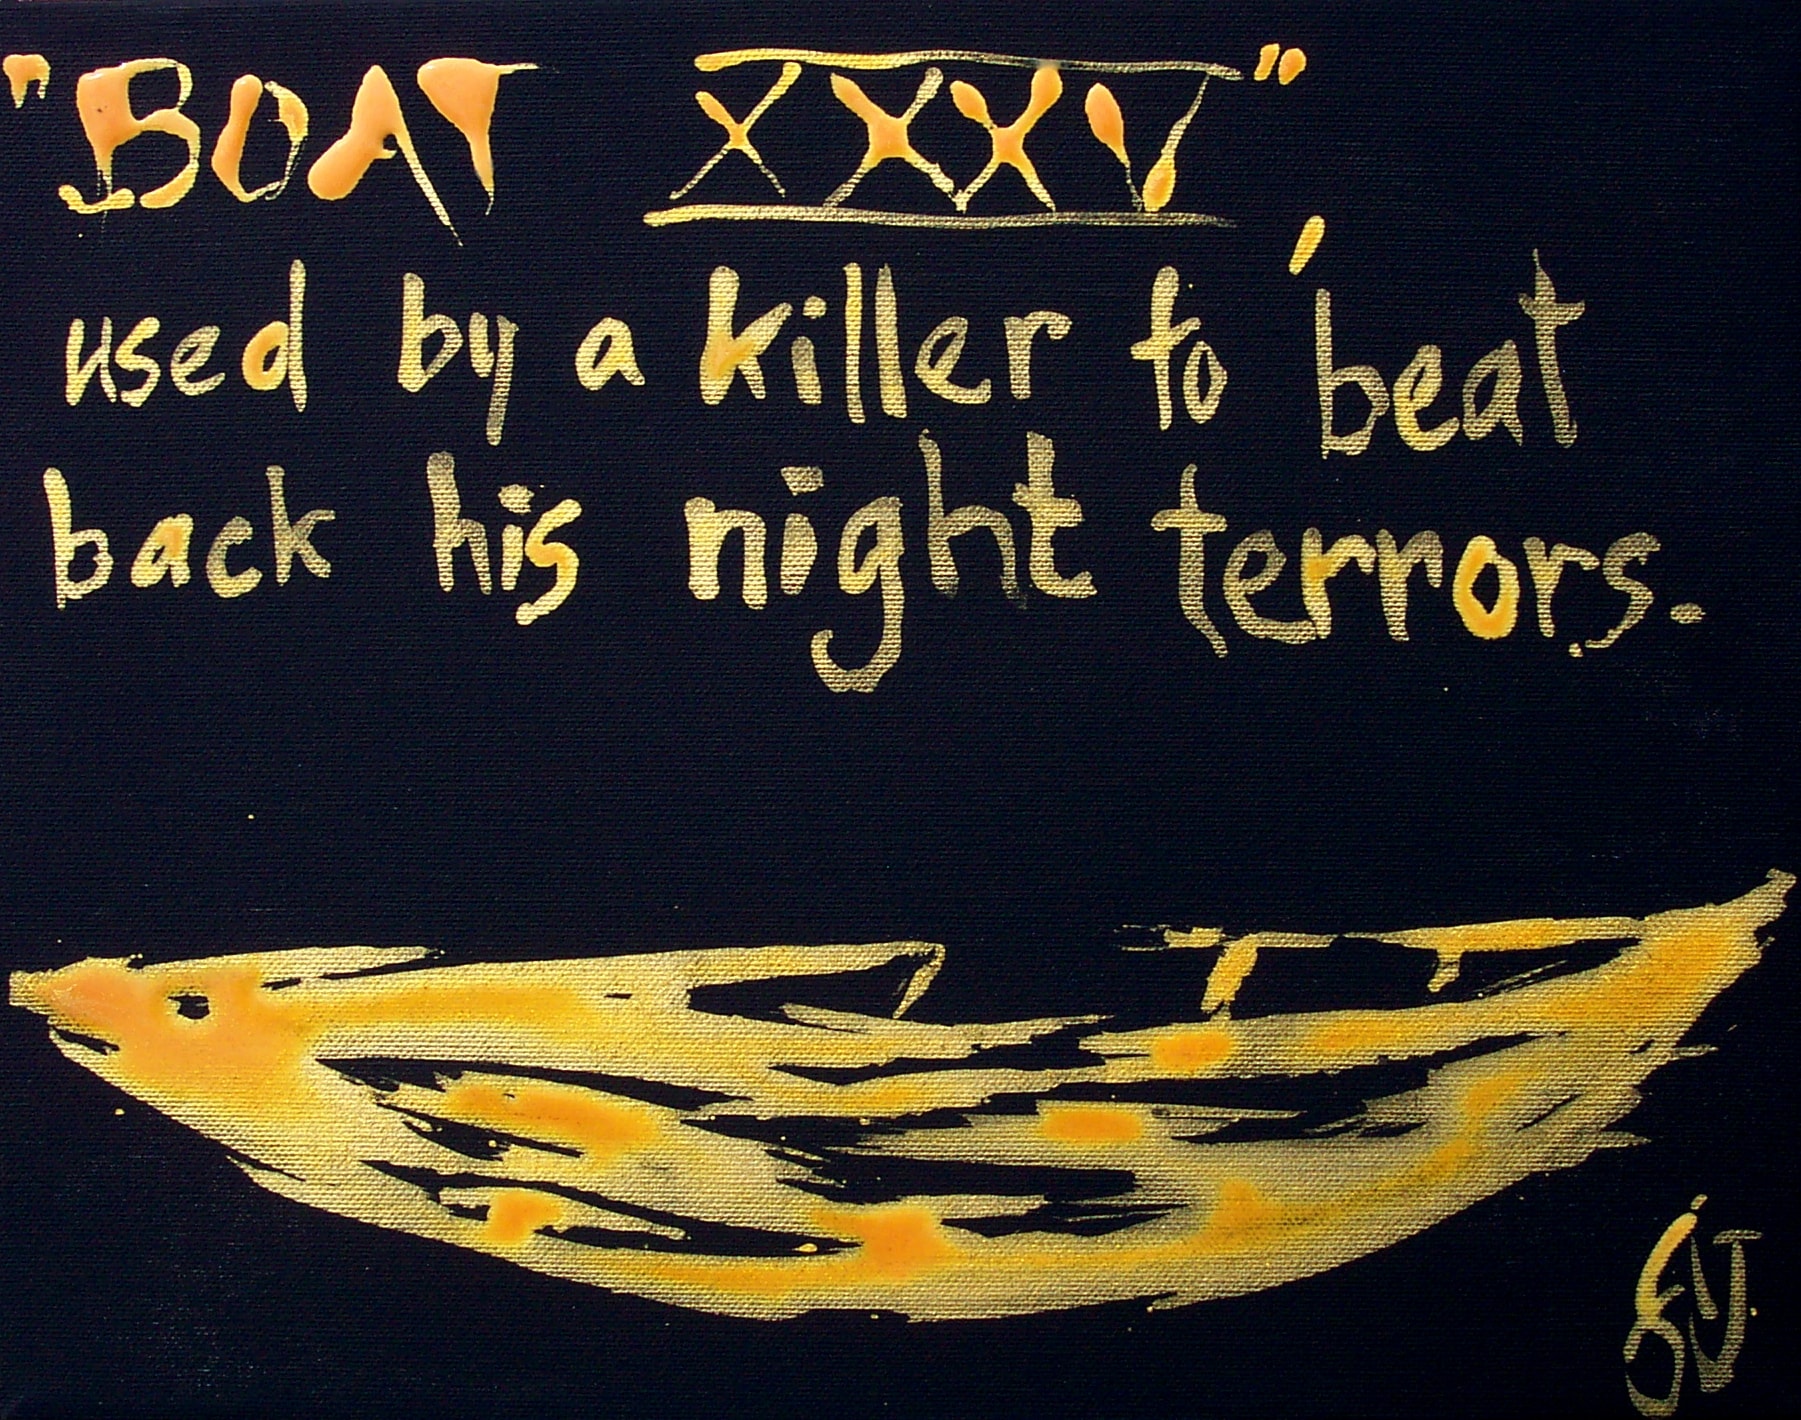 "BOAT XXXV",
used by a killer to beat
back his night terrors.